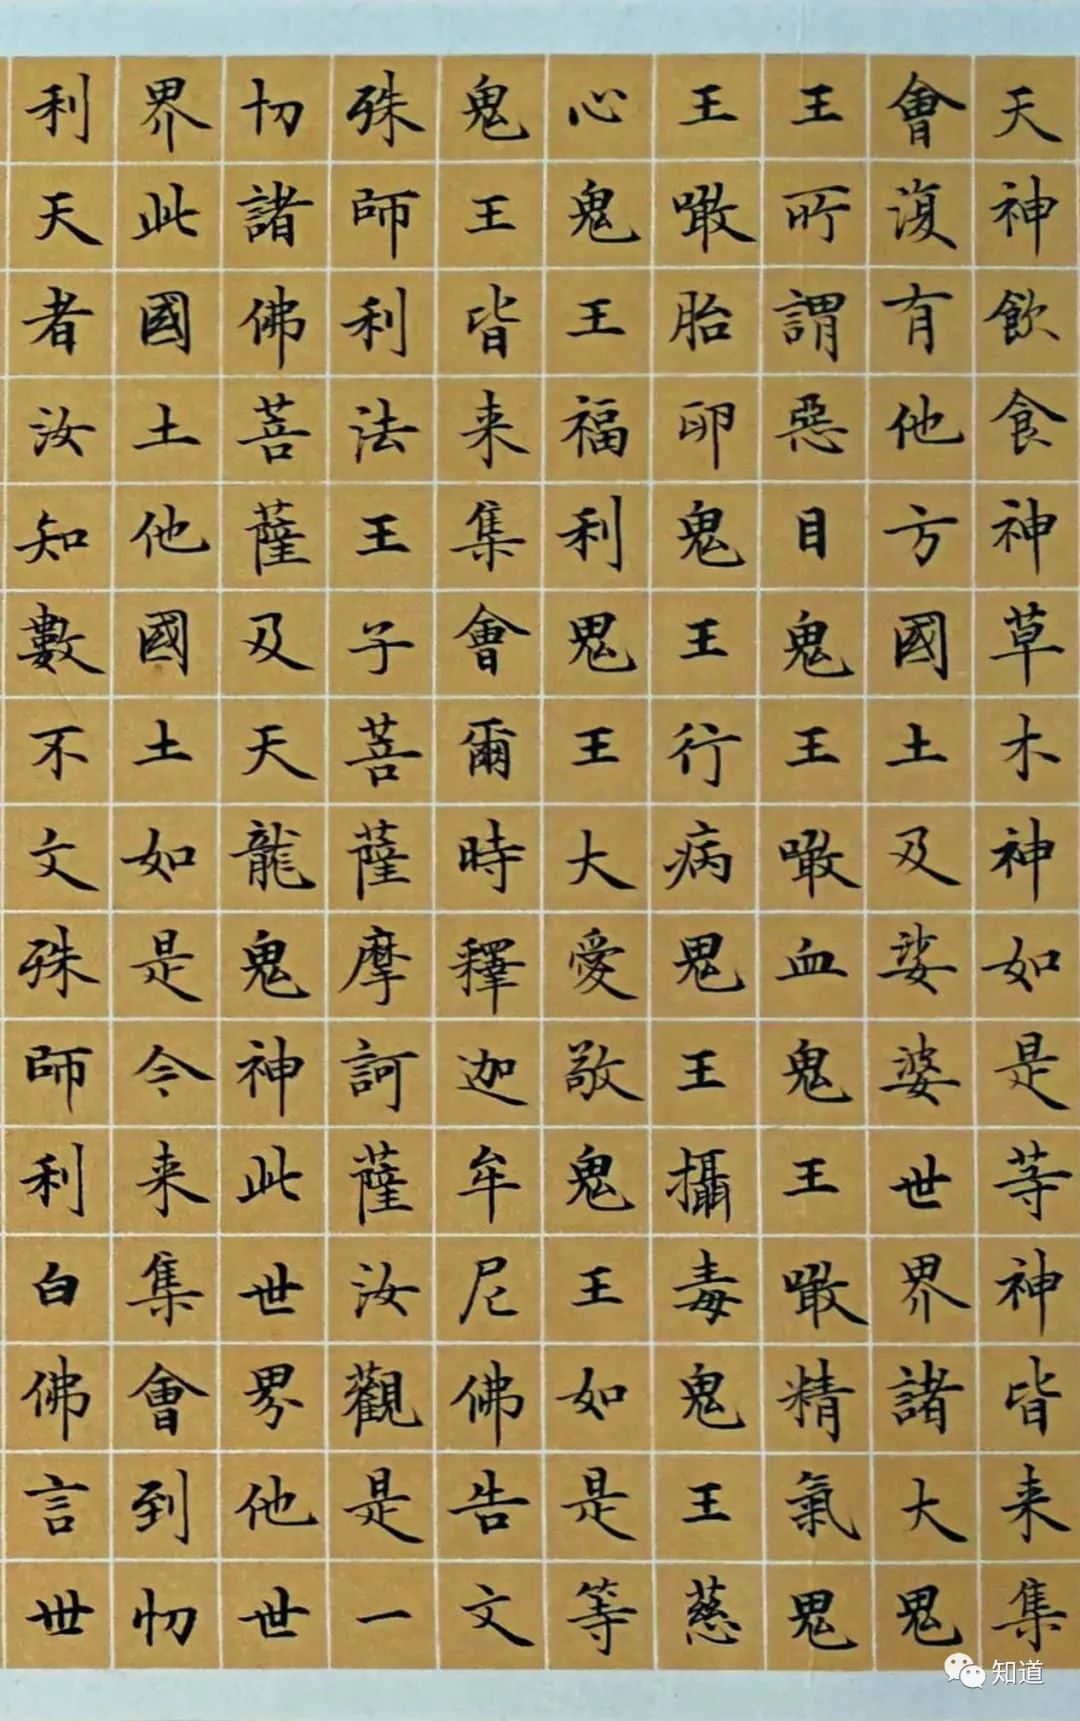 天神飲食神草木神如是等神皆来集
會復有他方國土及娑婆世界諸大鬼
王所謂惡目鬼王噉血鬼王噉精氣鬼
王噉胎卵鬼王行病鬼王攝毒鬼王慈
心鬼王福利鬼王大愛敬鬼王如是等
鬼王皆来集會爾時釋迦牟尼佛告文
殊師利法王子菩薩摩訶薩汝觀是一
切諸佛菩薩及天龍鬼神此世界他世
界此國土他國土如是今来集會到忉
利天者汝知數不文殊師利白佛言世
知道